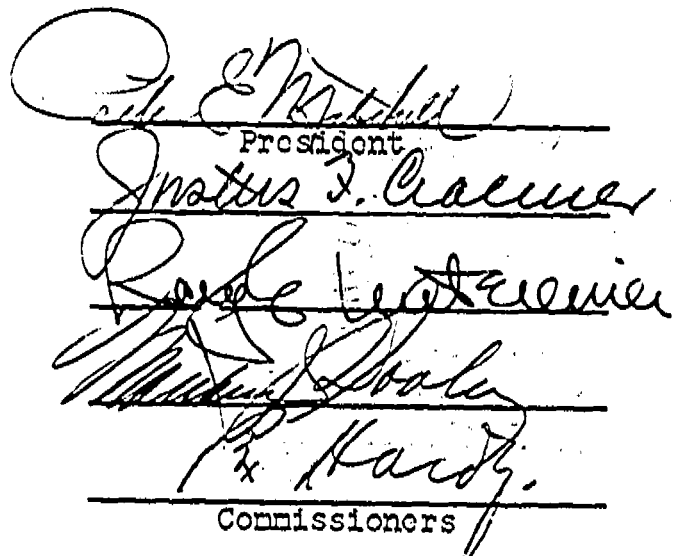 E. Mitchell
President
Justus F. Craemer
Ray E Untereiner
Dooley
Rex Hardy.
Commissioners